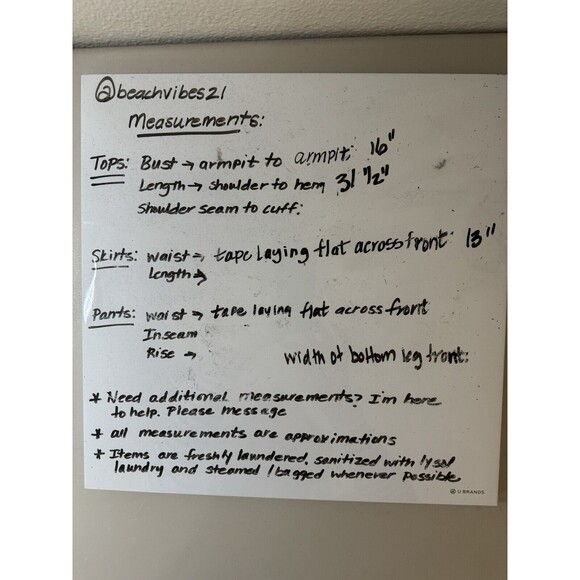 @beachvibes21
Measurements:
Tops: Bust → armpit to armpit: 16"
Length → shoulder to hem 31 1/2"
Shoulder seam to cuff:
Skirts: waist → tape laying flat across front: 13"
Length →
Pants: waist → tape laying flat across front
Inseam
Rise → width of bottom leg front:
* Need additional measurements? I'm here
to help. Please message
* all measurements are approximations
* Items are freshly laundered, sanitized with lysol
laundry and steamed / bagged whenever possible
U BRANDS